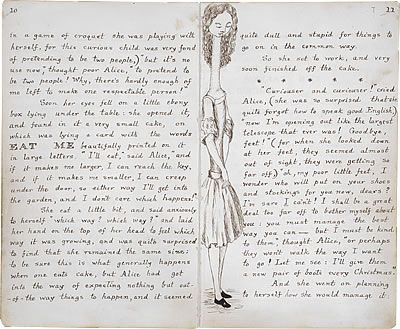 10
in a game of croquet she was playing with
herself, for this curious child was very fond
of pretending to be two people,) but it's no
use now," thought poor Alice, "to pretend to
be two people! Why, there's hardly enough of
me left to make one respectable person!"
Soon her eyes fell on a little ebony
box lying under the table: she opened it,
and found in it a very small cake, on
which was lying a card with the words
EAT ME beautifully printed on it
in large letters. "I'll eat," said Alice, "and
if it makes me larger, I can reach the key,
and if it makes me smaller, I can creep
under the door, so either way I'll get into
the garden, and I don't care which happens!"
She eat a little bit, and said anxiously
to herself "which way? which way?" and laid
her hand on the top of her head to feel which
way it was growing, and was quite surprised
to find that she remained the same size:
to be sure this is what generally happens
when one eats cake, but Alice had got
into the way of expecting nothing but out-
-of-the way things to happen, and it seemed
quite dull and stupid for things to
go on in the common way.
So she set to work, and very
soon finished off the cake.
* * * * *
"Curiouser and curiouser!" cried
Alice, (she was so surprised that she
quite forgot how to speak good English,)
"now I'm opening out like the largest
telescope that ever was! Goodbye,
feet!" (for when she looked down
at her feet, they seemed almost
out of sight, they were getting so
far off,) "oh, my poor little feet, I
wonder who will put on your shoes
and stockings for you now, dears?
I'm sure I can't! I shall be a great
deal too far off to bother myself about
you: you must manage the best
way you can — but I must be kind
to them," thought Alice, "or perhaps
they won't walk the way I want
to go! Let me see: I'll give them
a new pair of boots every Christmas."
And she went on planning
to herself how she would manage it: